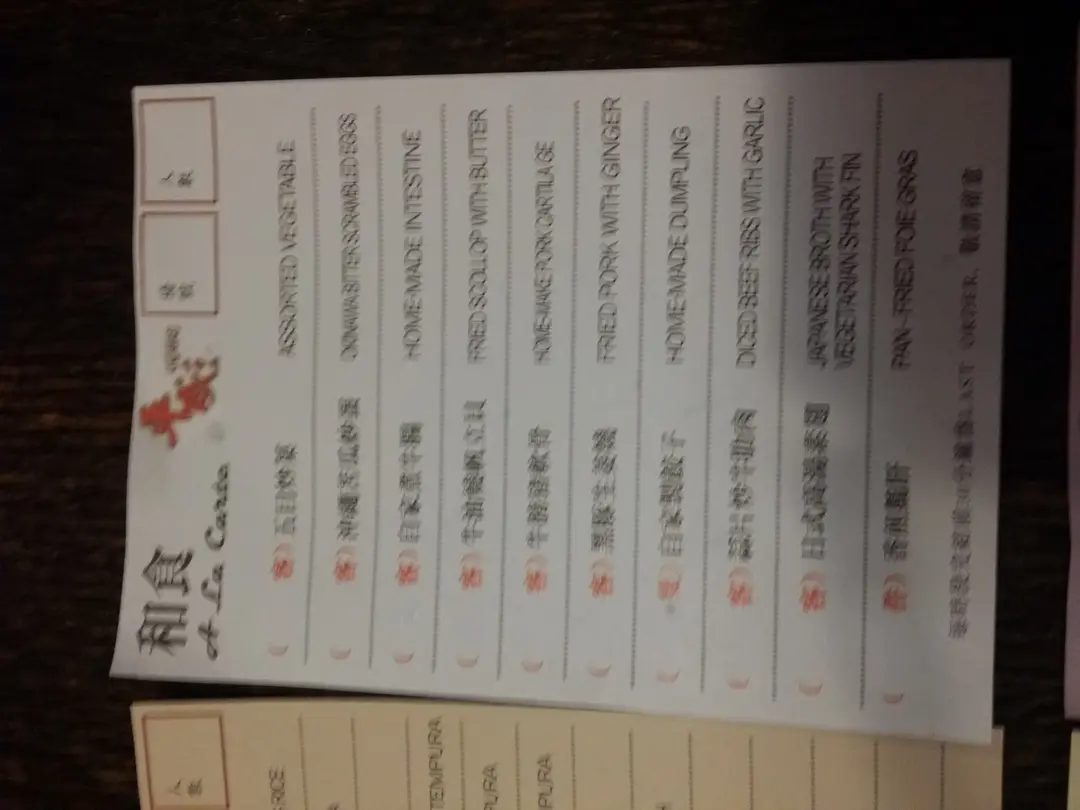 和食
A La Carte
人數
客) 五目炒菜 ASSORTED VEGETABLE
客) 沖繩苦瓜炒蛋 OKINAWA BITTER SCRAMBLED EGGS
客) 自家煮牛腸 HOME-MADE INTESTINE
客) 牛油燒帆立貝 FRIED SCOLLOP WITH BUTTER
客) HOME-MAKE PORK CARTILAGE
客) 黑豚生姜燒 FRIED PORK WITH GINGER
自家製餃子 HOME-MADE DUMPLING
客) 蒜片炒牛肋肉 DICED BEEF RIBS WITH GARLIC
客) 日式 JAPANESE BROTH WITH
VEGETARIAN SHARK FIN
件) 香煎鵝肝 PAN-FRIED FOIE GRAS
LAST ORDER,
人數
RICE
TEMPURA
PURA
PURA